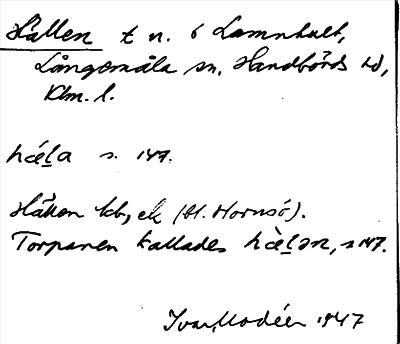 Hällen t n. 6 Lamnhult,
Långemåla sn, Handbörds hd,
Klm. l.
hǽḷa s. 147.
Hällen lcb, ek (Bl. Hornsö).
Torparen kallades hæ̀ḷən, s 147.
Ivar Modéer 1947